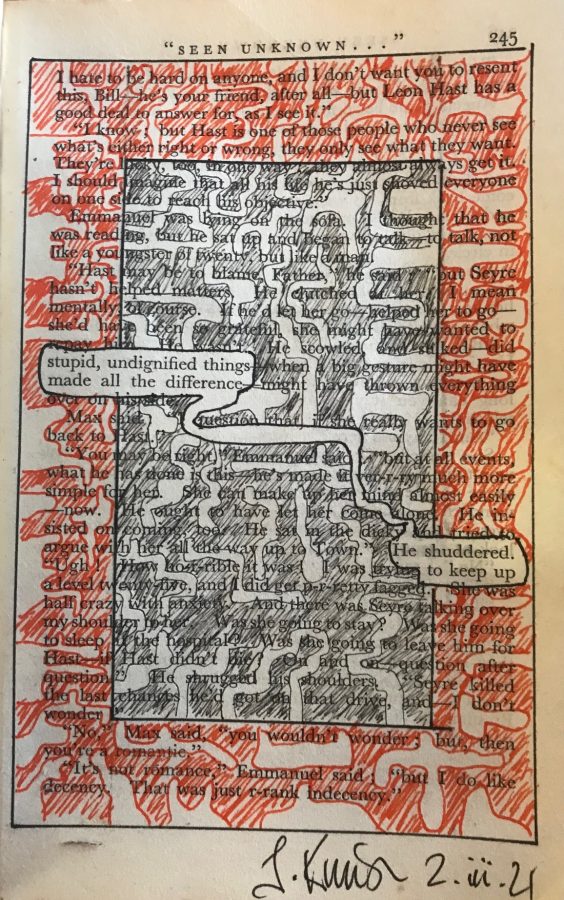 "SEEN UNKNOWN..." 245
I hate to be hard on anyone, and I don't want you to resent
this, Bill—he's your friend, after all—but Leon Hast has a
good deal to answer for, as I see it."
"I know; but Hast is one of those people who never see
what's either right or wrong, they only see what they want.
They're in one way they almost always get it.
I should imagine that all his life he's just shoved everyone
on one side to reach his objective."
Emmanuel was lying on the sofa. I thought that he
was reading, but he sat up and began to talk—to talk, not
like a youngster of twenty, but like a man.
"Hast may be to blame, Father," he said, "but Seyre
hasn't helped matters. He clutched at her. I mean
mentally, of course. If he'd let her go—helped her to go—
she'd have been so grateful, she might have wanted to
repay him. He wasn't. He scowled and sulked—did
stupid, undignified things
made all the difference—might have thrown everything
when a big gesture might have
over on his side."
Max said, question that, if she really wants to go
back to Hast.
"You may be right," Emmanuel said; "but at all events,
what he has done is this—he's made it ver-r-ry much more
simple for her. She can make up her mind almost easily
—now. He ought to have let her come alone. He in-
sisted on coming, too. He sat in the dicky and tried to
argue with her all the way up to Town." He shuddered.
"Ugh! How ho-r-rible it was! I was trying to keep up
a level twenty-five, and I did get p-r-retty fagged. She was
half crazy with anxiety. And there was Seyre talking over
my shoulder to her. Was she going to stay? Was she going
to sleep at the hospital? Was she going to leave him for
Hast—if Hast didn't die? On and on—question after
question." He shrugged his shoulders. "Seyre killed
the last chances he'd got on that drive, and—I don't
wonder."
"No," Max said, "you wouldn't wonder; but, then
you're a romantic."
"It's not romance," Emmanuel said; "but I do like
decency. That was just r-rank indecency."
2.iii.21